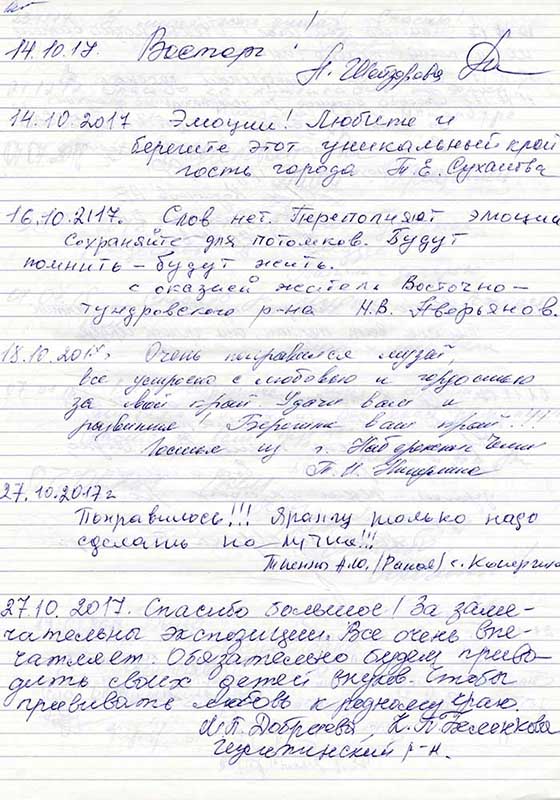 14.10.17. Восторг!
Н. Шейдорова
14.10.2017 Эмоции! Любите и
берегите этот уникальный край
гость города Т.Е. Сухаева
16.10.2117. Слов нет. Переполняют эмоции
Сохраняйте для потомков. Будут
помнить – будут жить.
с оказией житель Восточно-
тундровского р-на Н.В. Аверьянов.
18.10.2017г Очень понравился музей,
все устроено с любовью и гордостью
за свой край Удачи вам и
развития! Берегите ваш край!!!
Гостья из г. Набережные Челны
Т. Н.
27.10.2017г
Понравилось!!! Ярангу только надо
сделать по лучше!!!
А.Ю. (Раная) с. Конергино
27.10. 2017. Спасибо большое! За заме-
чательны экспозиции. Все очень впе-
чатляет. Обязательно будем приво-
дить своих детей внуков. Чтобы
прививать любовь к родному краю.
М.П. Добриева, К.П. Беленкова
р-н.